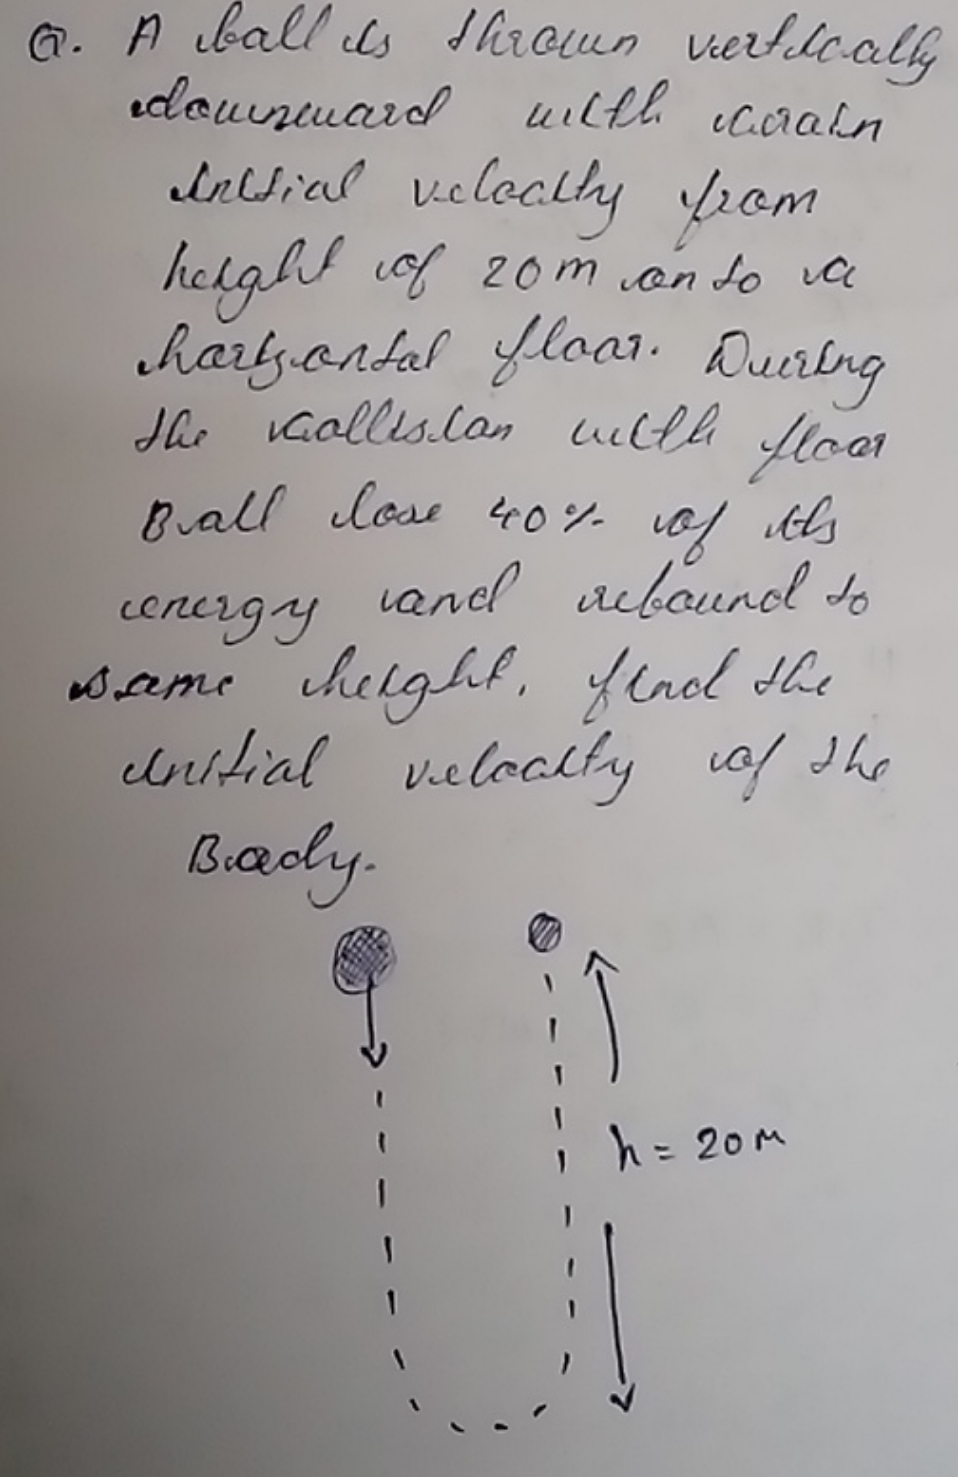 Q. A ball is thrown vertically
downward with cerain
initial velocity from
height of 20m on to a
horizontal floor. During
the collision with floor
Ball lose 40% of its
energy and rebound to
same height. find the
initial velocity of the
Body.
h = 20m